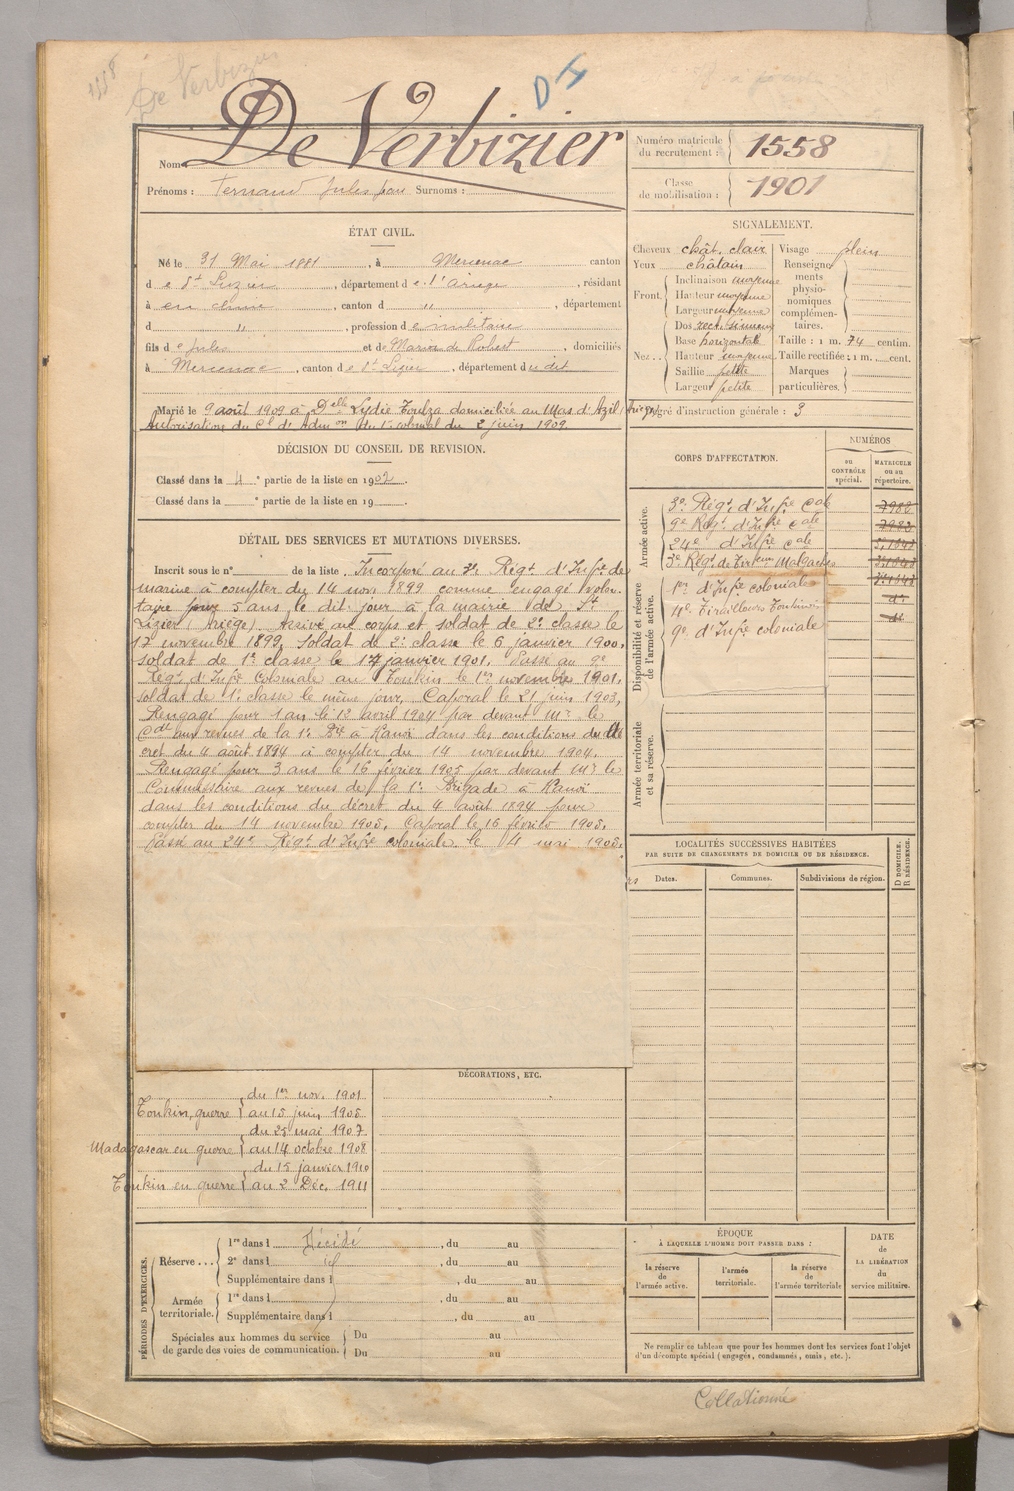 1558
De Verbizier
D I
Nom De Verbizier
Prénoms : Fernand Jules Jean Surnoms :
Numéro matricule
du recrutement : 1558
Classe
de mobilisation : 1901
ÉTAT CIVIL.
Né le 31 Mai 1881, à Mercenac canton
d e St Lizier, département d e l'Ariège, résidant
à en chine, canton d ", département
d ", profession d e militaire
fils d e Jules et de Marie de Robert, domiciliés
à Mercenac, canton d e St Lizier, département d u dit
Marié le 9 août 1909 à Delle Lydie Toulza domiciliée au Mas d'Azil (Ariège)
Autorisation du Cl d'Admon du 1er colonial du 2 juin 1909.
SIGNALEMENT.
Cheveux chât. clair
Yeux châtain
Front. Inclinaison moyenne
Hauteur moyenne
Largeur moyenne
Nez.. Dos rect. sinueux
Base horizontale
Hauteur moyenne
Saillie petite
Largeur petite
Visage plein
Renseignements
physionomiques
complémentaires.
Taille : 1 m. 74 centim.
Taille rectifiée : 1 m. cent.
Marques
particulières.
Degré d'instruction générale : 3
DÉCISION DU CONSEIL DE REVISION.
Classé dans la 4 e partie de la liste en 1902.
Classé dans la e partie de la liste en 19
DÉTAIL DES SERVICES ET MUTATIONS DIVERSES.
Inscrit sous le n° de la liste. Incorporé au 3e Régt d'Infie de
marine à compter du 14 nov. 1899 comme engagé volon-
taire pour 5 ans le dit jour à la mairie de St
Lizier (Ariège). Arrivé au corps et soldat de 2e classe le
17 novembre 1899, soldat de 2e classe le 6 janvier 1900,
soldat de 1e classe le 17 janvier 1901. Passé au 9e
Régt d'Infie Coloniale au Tonkin le 1er novembre 1901.
soldat de 1e classe le même jour, Caporal le 21 juin 1903,
Rengagé pour 1 an le 12 avril 1904 par devant Mr le
Cdt aux revues de la 1e Bde à Hanoï dans les conditions du dé
cret du 4 août 1894 à compter du 14 novembre 1904.
Rengagé pour 3 ans le 16 février 1905 par devant Mr le
Commissaire aux revues de la 1e Brigade à Hanoï
dans les conditions du décret du 4 août 1894 pour
compter du 14 novembre 1905. Caporal le 16 février 1905.
Passé au 24e Régt d'Infie coloniale le 4 mai 1905.
CORPS D'AFFECTATION.
NUMÉROS
au
CONTRÔLE
spécial.
MATRICULE
ou au
répertoire.
Armée active.
3e Régt d'Infie Cale 7982
9e Régt d'Infie Cale 7982
24e d'Infie Cale
3e Régt de Tirailleurs Malgaches
Disponibilité et réserve
de l'armée active.
1er d'Infie coloniale
4e Tirailleurs Tonkinois
9e d'Infie coloniale
Armée territoriale
et sa réserve.
LOCALITÉS SUCCESSIVES HABITÉES
PAR SUITE DE CHANGEMENTS DE DOMICILE OU DE RÉSIDENCE.
Dates.
Communes.
Subdivisions de région.
D DOMICILE.
R RÉSIDENCE.
DÉCORATIONS, ETC.
Tonkin, guerre } du 1er nov. 1901
au 15 juin 1905
Madagascar en guerre } du 25 mai 1907
au 14 octobre 1908
Tonkin en guerre } du 15 janvier 1910
au 2 Déc. 1911
PÉRIODES D'EXERCICES.
Réserve... 1re dans l Décédé, du au
2e dans l, du au
Supplémentaire dans l, du au
Armée
territoriale. 1re dans l, du au
Supplémentaire dans l, du au
Spéciales aux hommes du service
de garde des voies de communication. Du au
Du au
ÉPOQUE
À LAQUELLE L'HOMME DOIT PASSER DANS :
la réserve
de
l'armée active.
l'armée
territoriale.
la réserve
de
l'armée territoriale
DATE
de
LA LIBÉRATION
du
service militaire.
Ne remplir ce tableau que pour les hommes dont les services font l'objet
d'un décompte spécial (engagés, condamnés, omis, etc.).
Collationné